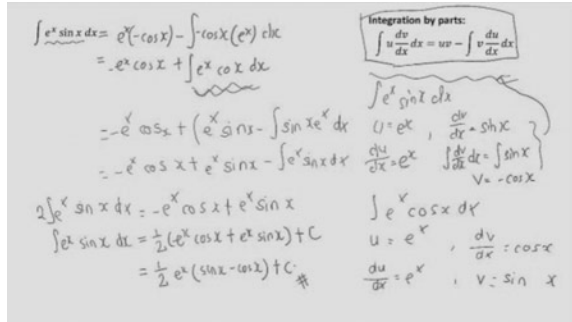 ∫ eˣ sin x dx = eˣ(-cos x) - ∫ -cos x (eˣ) dx
= -eˣ cos x + ∫ eˣ co x dx
= -eˣ cos x + (eˣ sin x - ∫ sin x eˣ dx
= -eˣ cos x + eˣ sin x - ∫ eˣ sin x dx
2∫ eˣ sin x dx = -eˣ cos x + eˣ sin x
∫ eˣ sin x dx = 1/2 (-eˣ cos x + eˣ sin x) + C
= 1/2 eˣ (sin x - cos x) + C.
#
Integration by parts:
∫ u dv/dx dx = uv - ∫ v du/dx dx
∫ eˣ sin x dx
U = eˣ , dv/dx = sin x
du/dx = eˣ ∫ dv/dx dx = ∫ sin x
V = -cos x
∫ eˣ cos x dx
u = eˣ , dv/dx = cos x
du/dx = eˣ , v = sin x